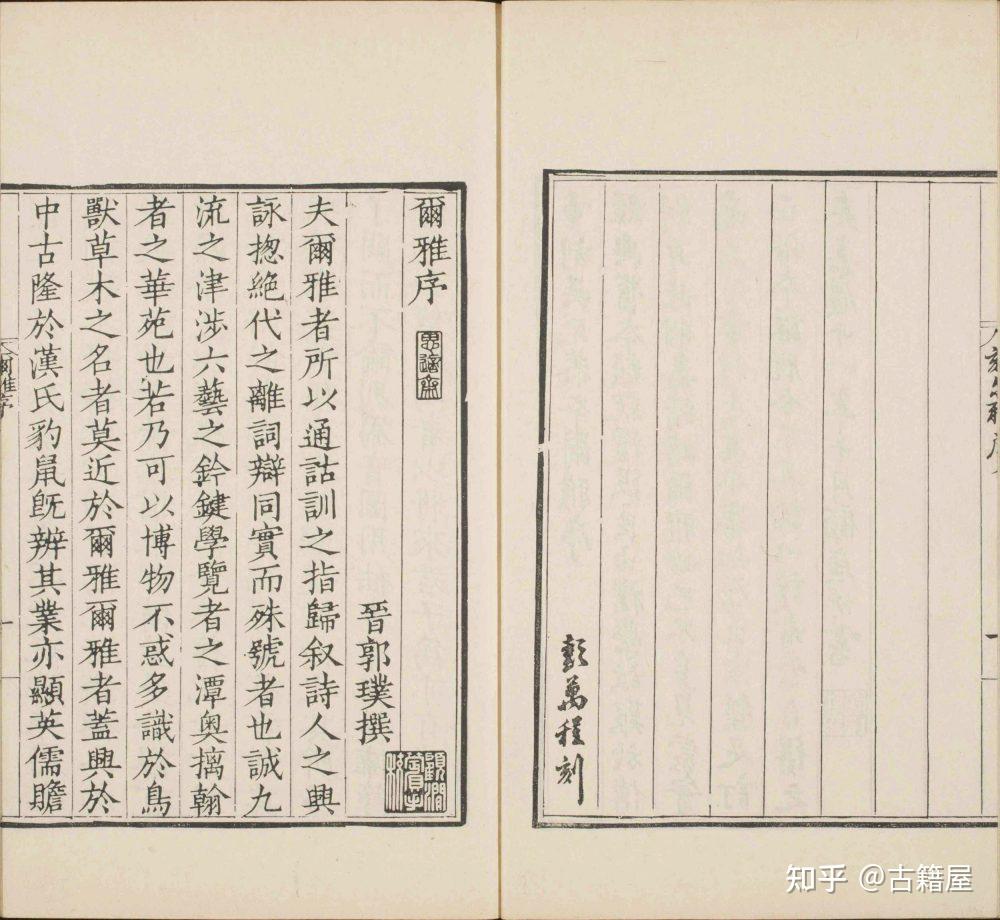 彭萬程刻
爾雅序
思適齋
晉郭璞撰
顧澗薲藏
夫爾雅者所以通詁訓之指歸叙詩人之興
詠揔絶代之離詞辯同實而殊號者也誠九
流之津涉六藝之鈐鍵學覽者之潭奥摛翰
者之華苑也若乃可以博物不惑多識於鳥
獸草木之名者莫近於爾雅爾雅者蓋興於
中古隆於漢氏豹鼠旣辨其業亦顯英儒贍
爾雅序
一
知乎 @古籍屋